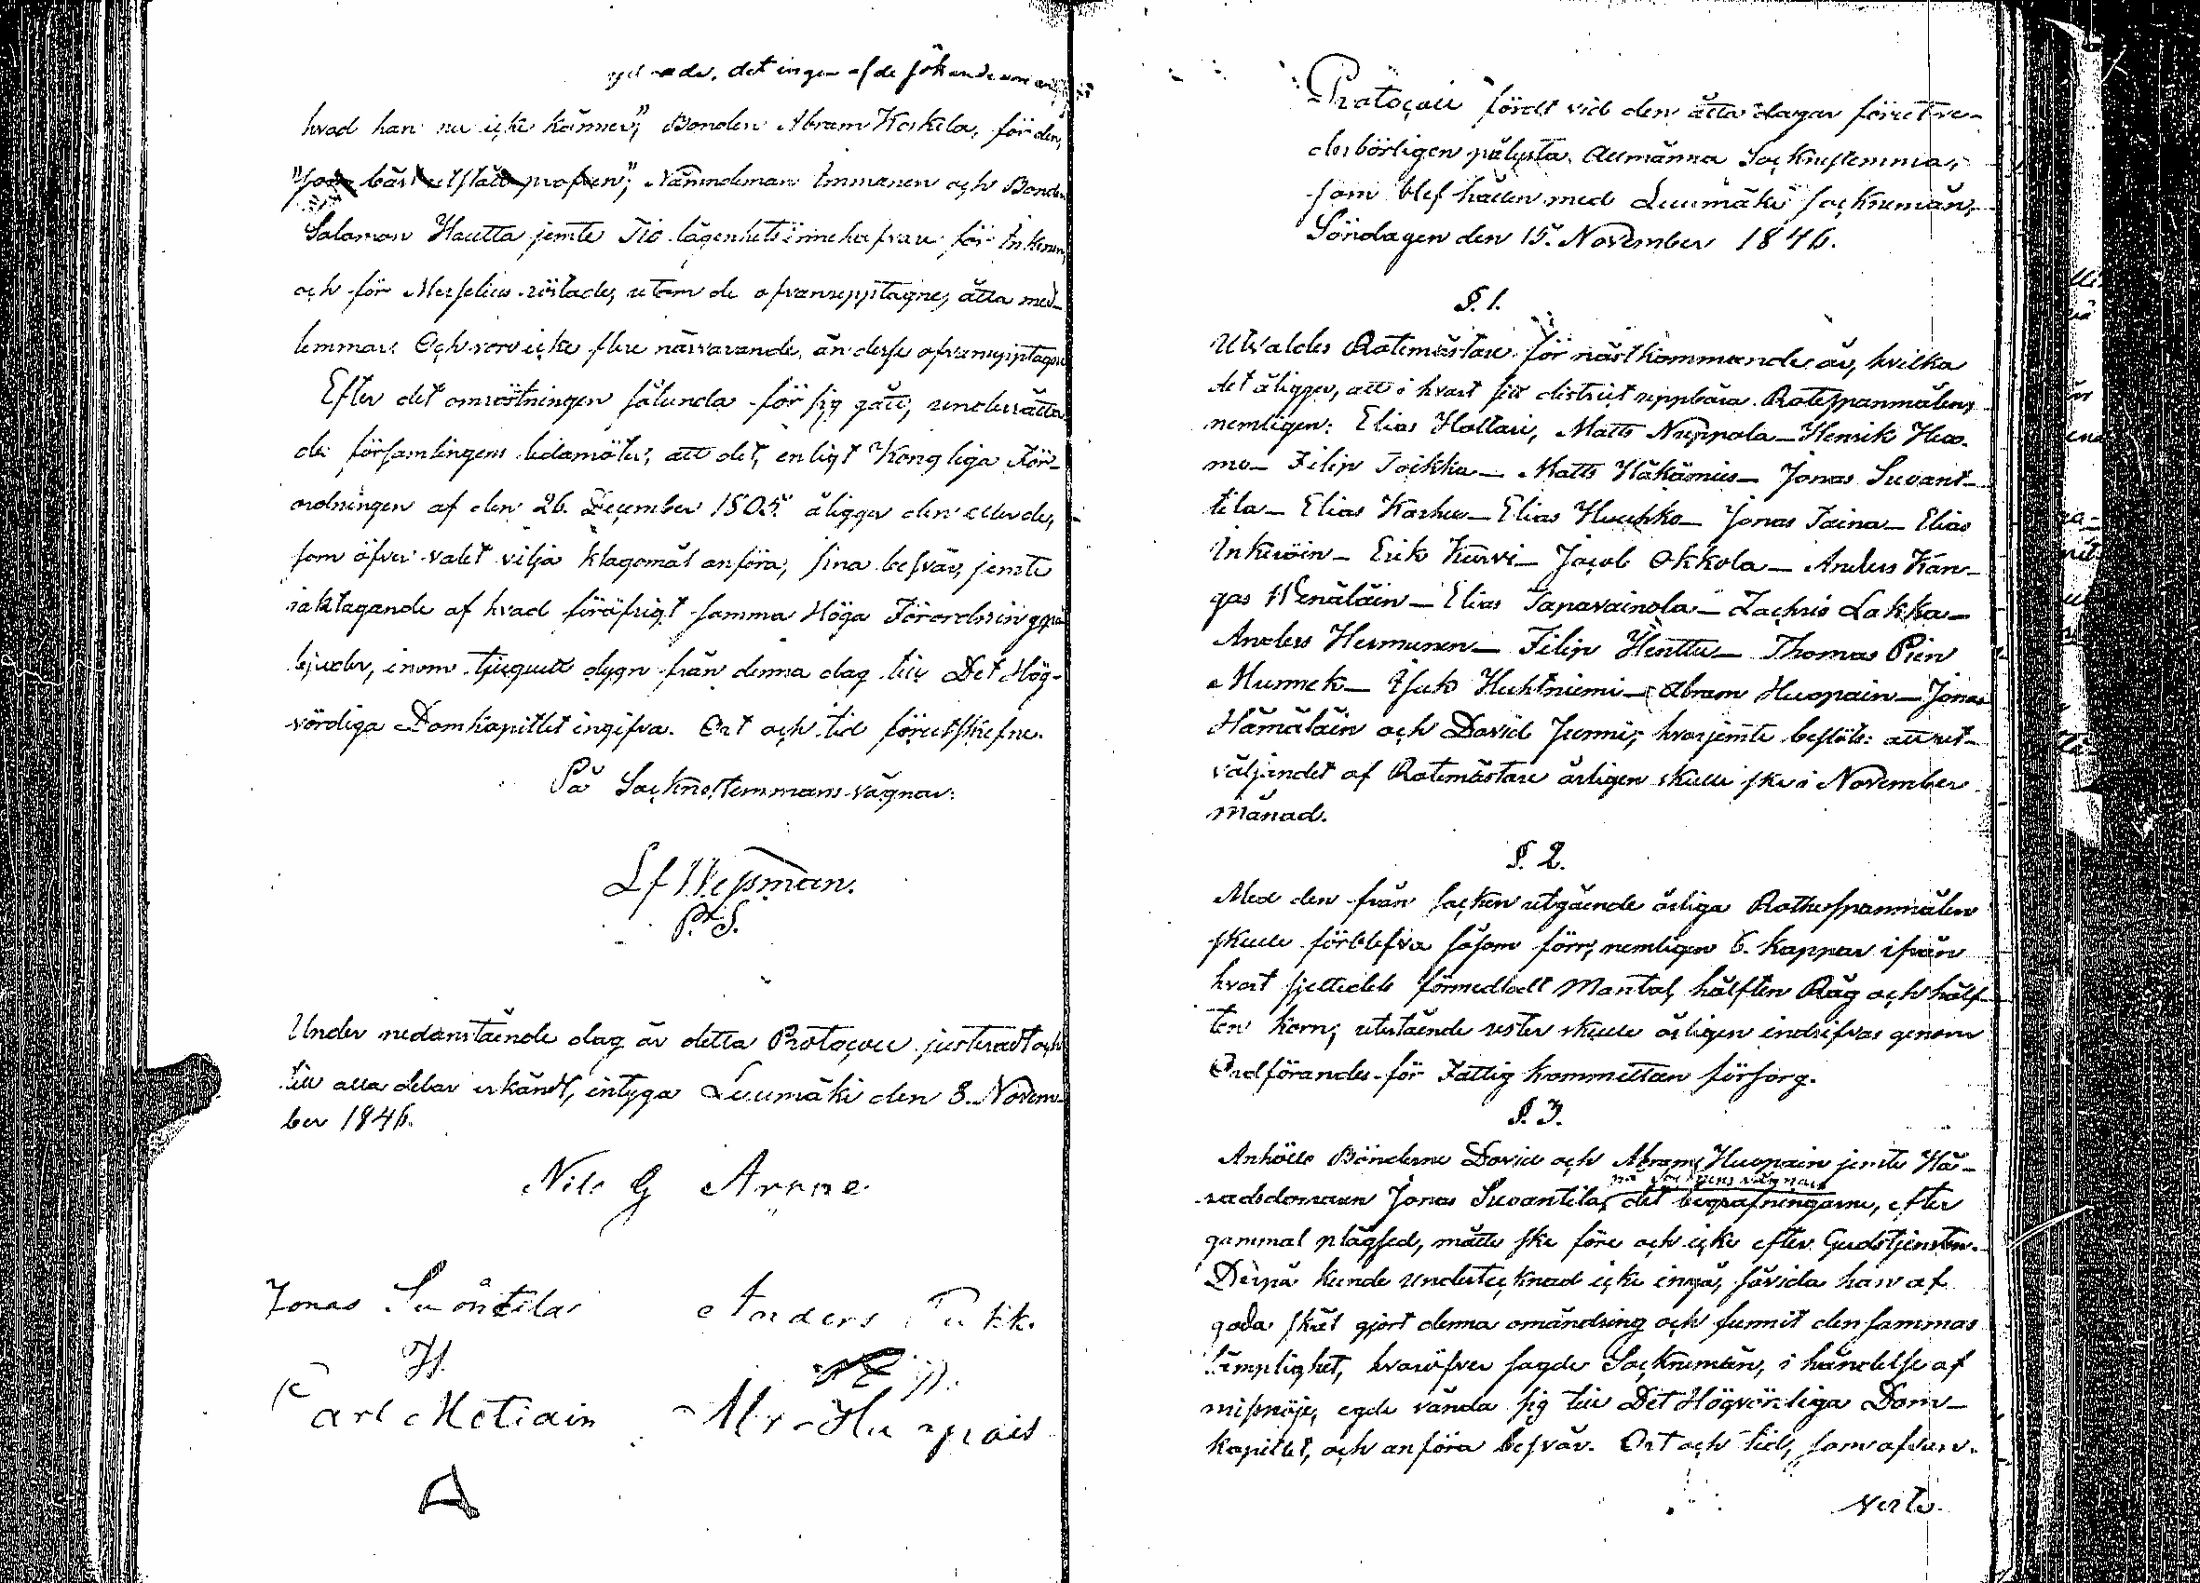 det ingen af de sökande
hvad han nu icke känner", Bonden Abram Koskela, för den,
"som bäst utstått profven"; Nämndeman Immonen och Bonden
Salomon Hautta jemte Tio lägenhetsinnehafvare för Inkinen,
och för Meselius röstade, utom de ofvanupptagne, åtta med-
lemmar. Och voro icke flere närvarande, än desse ofvanupptagne
Efter det omröstningen sålunda för sig gått, underrätta-
des församlingens ledamöter, att det, enligt Kongliga För-
ordningen af den 26. December 1805. åligger den eller de,
som öfver valet vilja klagomål anföra, sina besvär, jemte
iakttagande af hvad föröfrigt samma Höga Förordning på-
bjuder, inom tjugutt dygn från denna dag till Det Hög-
vördiga Domkapitlet ingifva. Ort och tid förutskrefne.
På Sockne-stemmans vägnar:
Lf Wessman.
P.S.
Under nedanstående dag är detta Protocoll justeradt och
till alla delar erkändt, intyga Luumäki den 8. Novem-
ber 1846.
Nils G Arppe
Jonas Suontila
Anders Pukk.
Karl Metiain
Protocoll fördt vid den åtta dagar förut ve-
derbörligen pålysta Allmänna Socknestemma,
som blef hållen med Luumäki Socknemän,
Söndagen den 15. November 1846.
§. 1.
Utvaldes Rotemästare för nästkommande år, hvilka
det åligger, att i hvart sitt district uppbära Rotespannmålen,
nemligen: Elias Hottari, Matts Nuppola - Henrik Huo-
mo - Filip Toikka - Matts Häkämies - Jonas Suvant-
tila - Elias Karhu - Elias Huuhka - Jonas Taina - Elias
Inkeröin - Erik Kurvi - Jacob Okkola - Anders Kan-
gas Wenäläin - Elias Tapavainola - Zachris Lakka -
Anders Hermunen - Filip Henttu - Thomas Pien
Munnek - Isak Huhtniemi - Abram Huopain - Jonas
Hämäläin och David Junni; hvarjemte beslöts: att ut-
väljandet af Rotemästare årligen skulle ske i November
månad.
§. 2.
Med den från Socken utgående årliga Rothespannmålen
skulle förblefva såsom förr, nemligen 6. kappar ifrån
hvart sjettedels förmedladt Mantal, hälften Råg och hälf-
ten korn; utestående rester skulle årligen indrifvas genom
Ordförandes för Fattig kommittén försorg.
§. 3.
Anhöllo Bönderne David och Abram Huopain jemte Hä-
på Socknens vägnar
radsdomaren Jonas Suvantila, det begrafningarne, efter
gammal plägsed, måtte ske före och icke efter Gudstjensten.
Derpå kunde undertecknad icke ingå, såvida han af
goda skäl gjort denna omändring och funnit densammas
lämplighet, hvaröfver sagde Socknemän, i händelse af
missnöje, egde vända sig till Det Högvördiga Dom-
kapitlet, och anföra besvär. Ort och tid, som ofvan.
Verte.